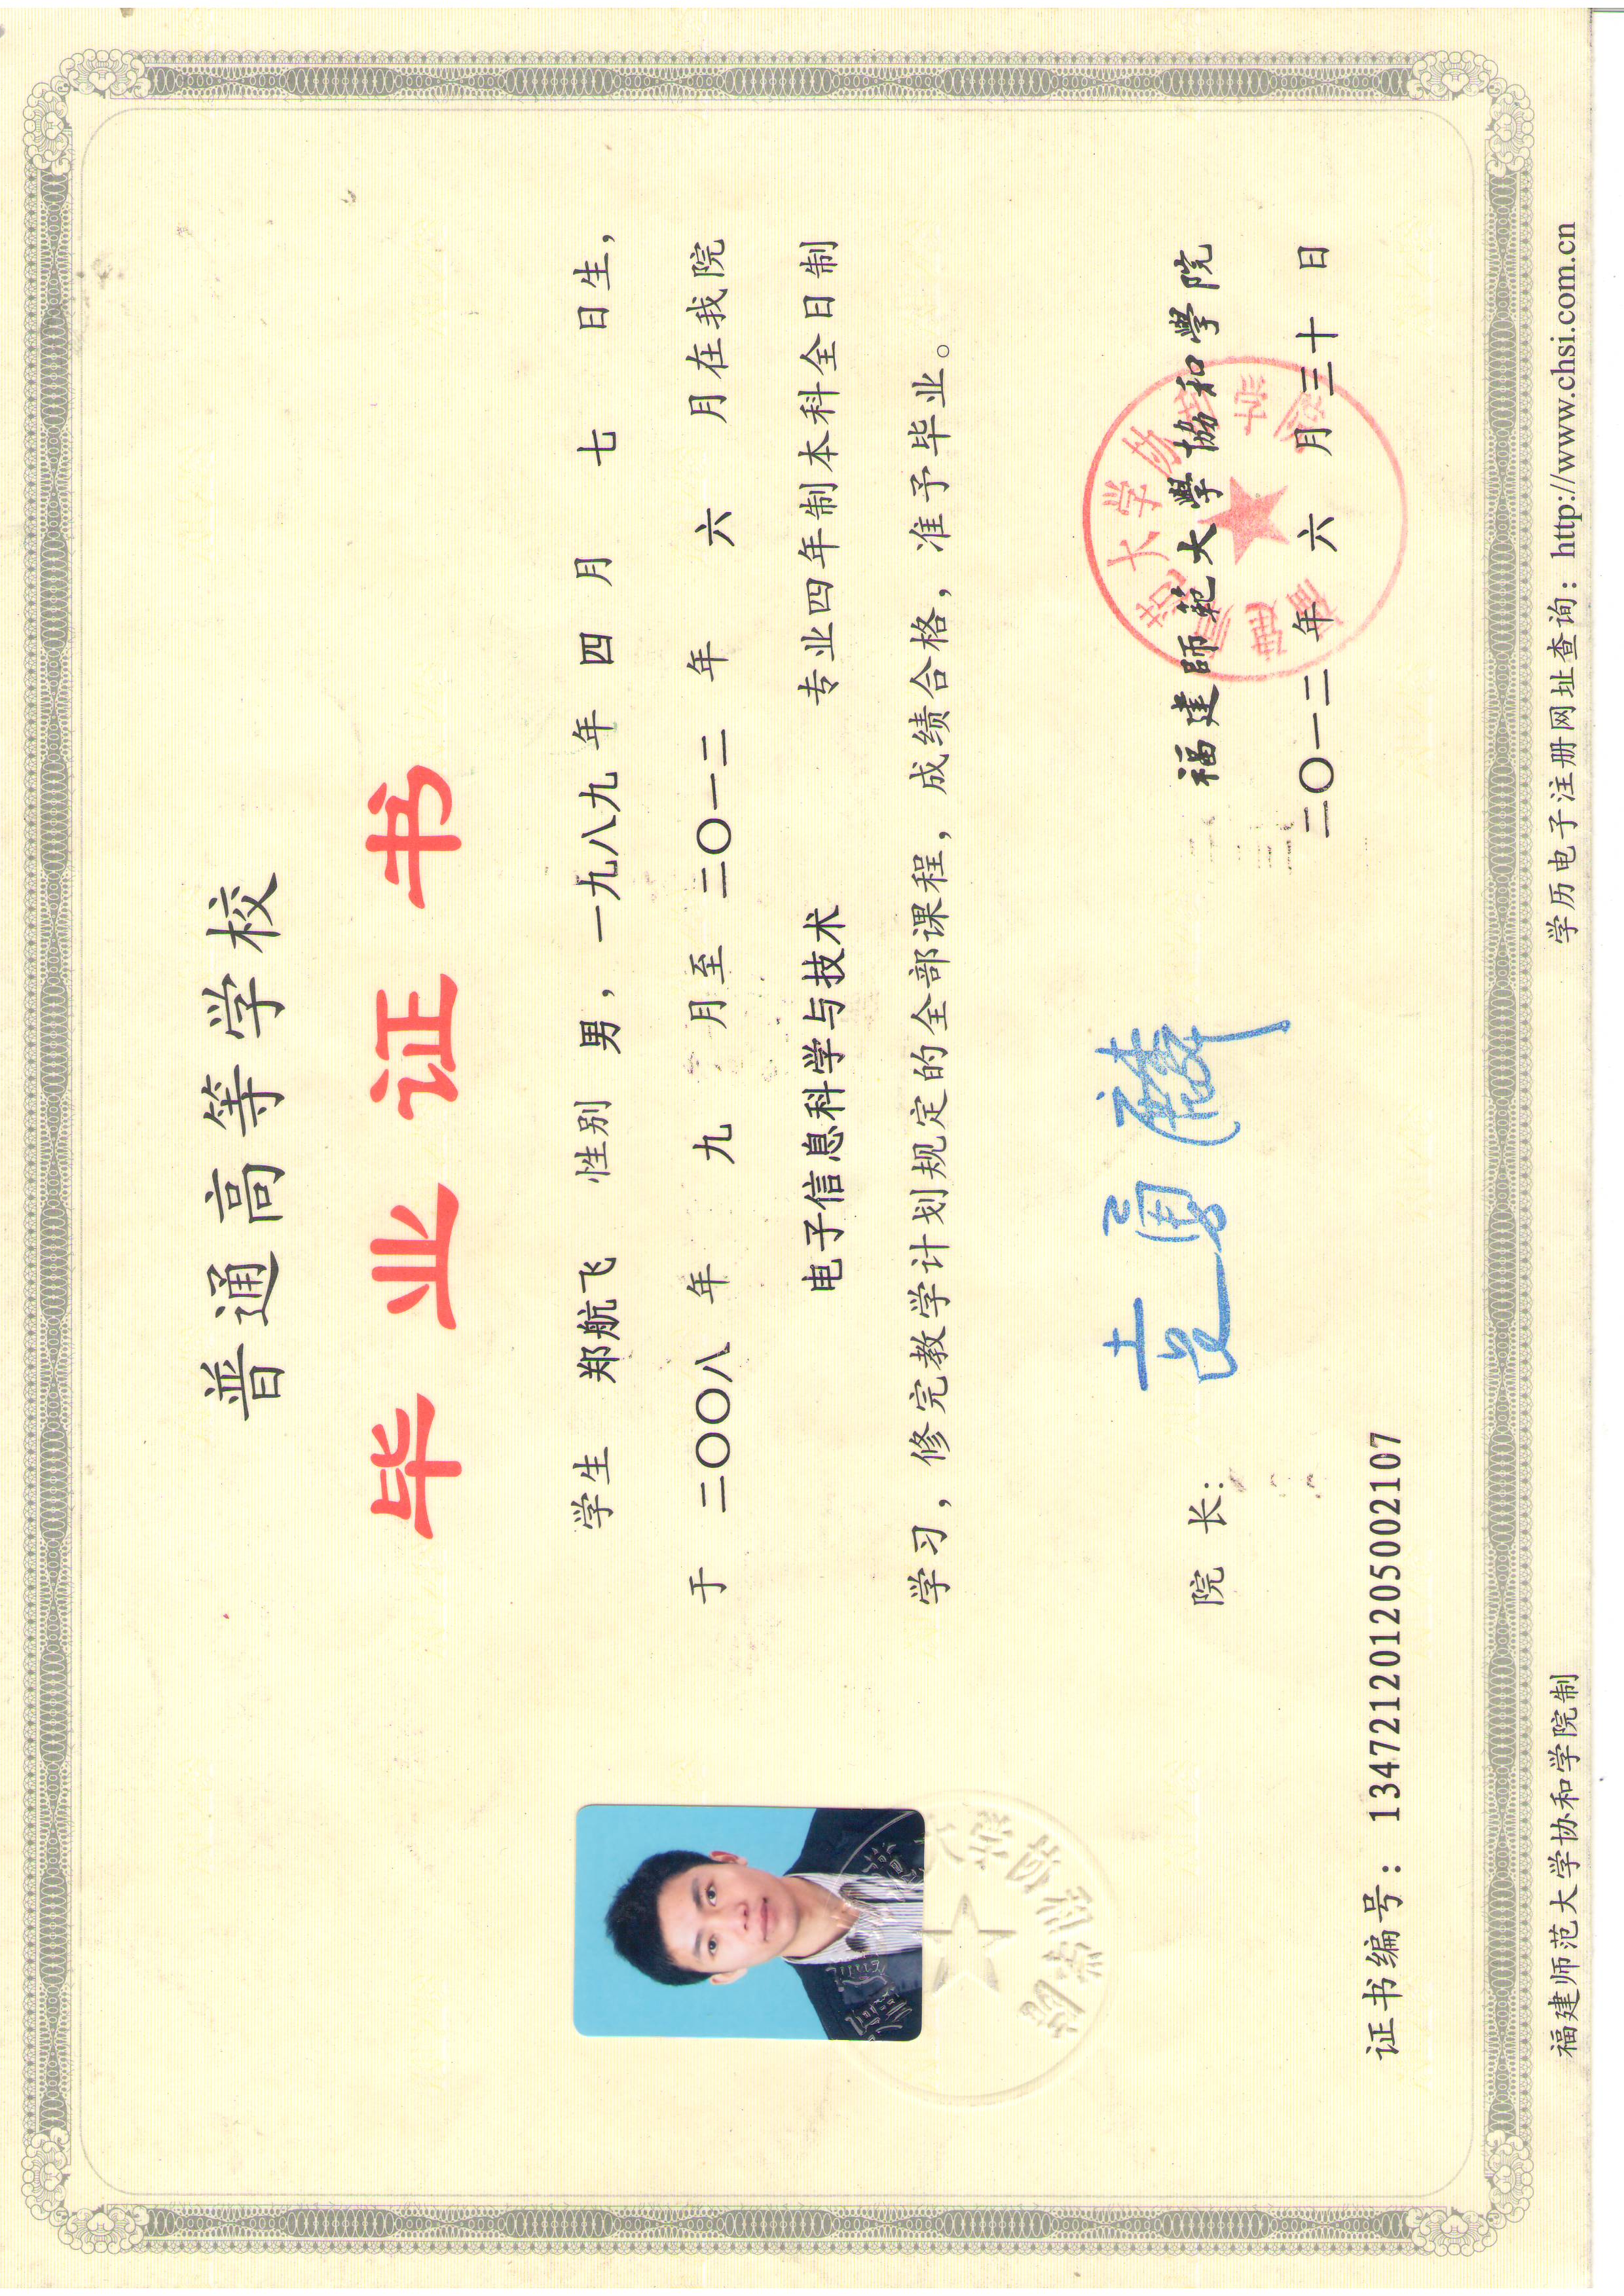 普通高等学校
毕业证书
学生 郑航飞 性别 男，一九八九年 四 月 七 日生，
于 二〇〇八 年 九 月至 二〇一二 年 六 月在我院
电子信息科学与技术 专业四年制本科全日制
学习，修完教学计划规定的全部课程，成绩合格，准予毕业。
院 长：
福建師範大學協和學院
二〇一二年 六 月三十 日
证书编号：134721201205002107
福建师范大学协和学院制
学历电子注册网址查询：http://www.chsi.com.cn